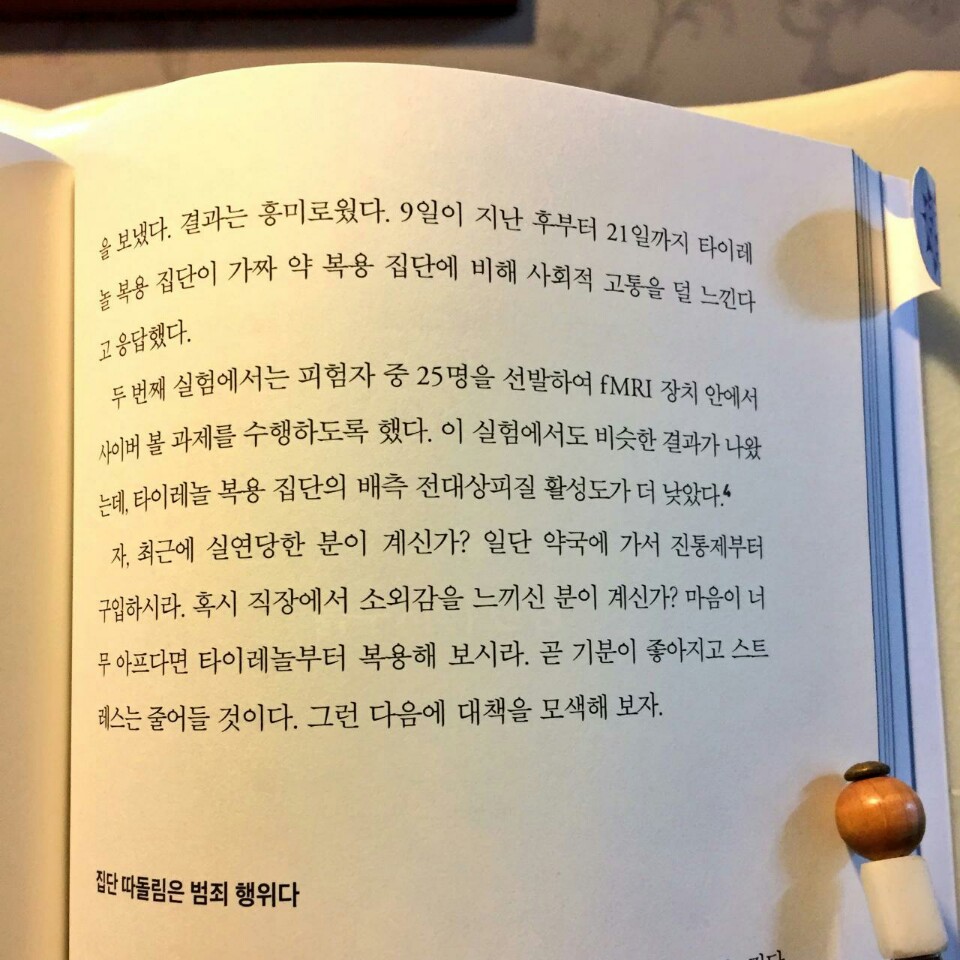 을 보냈다. 결과는 흥미로웠다. 9일이 지난 후부터 21일까지 타이레
놀 복용 집단이 가짜 약 복용 집단에 비해 사회적 고통을 덜 느낀다
고 응답했다.
두 번째 실험에서는 피험자 중 25명을 선발하여 fMRI 장치 안에서
사이버 볼 과제를 수행하도록 했다. 이 실험에서도 비슷한 결과가 나왔
는데, 타이레놀 복용 집단의 배측 전대상피질 활성도가 더 낮았다.4
자, 최근에 실연당한 분이 계신가? 일단 약국에 가서 진통제부터
구입하시라. 혹시 직장에서 소외감을 느끼신 분이 계신가? 마음이 너
무 아프다면 타이레놀부터 복용해 보시라. 곧 기분이 좋아지고 스트
레스는 줄어들 것이다. 그런 다음에 대책을 모색해 보자.
집단 따돌림은 범죄 행위다